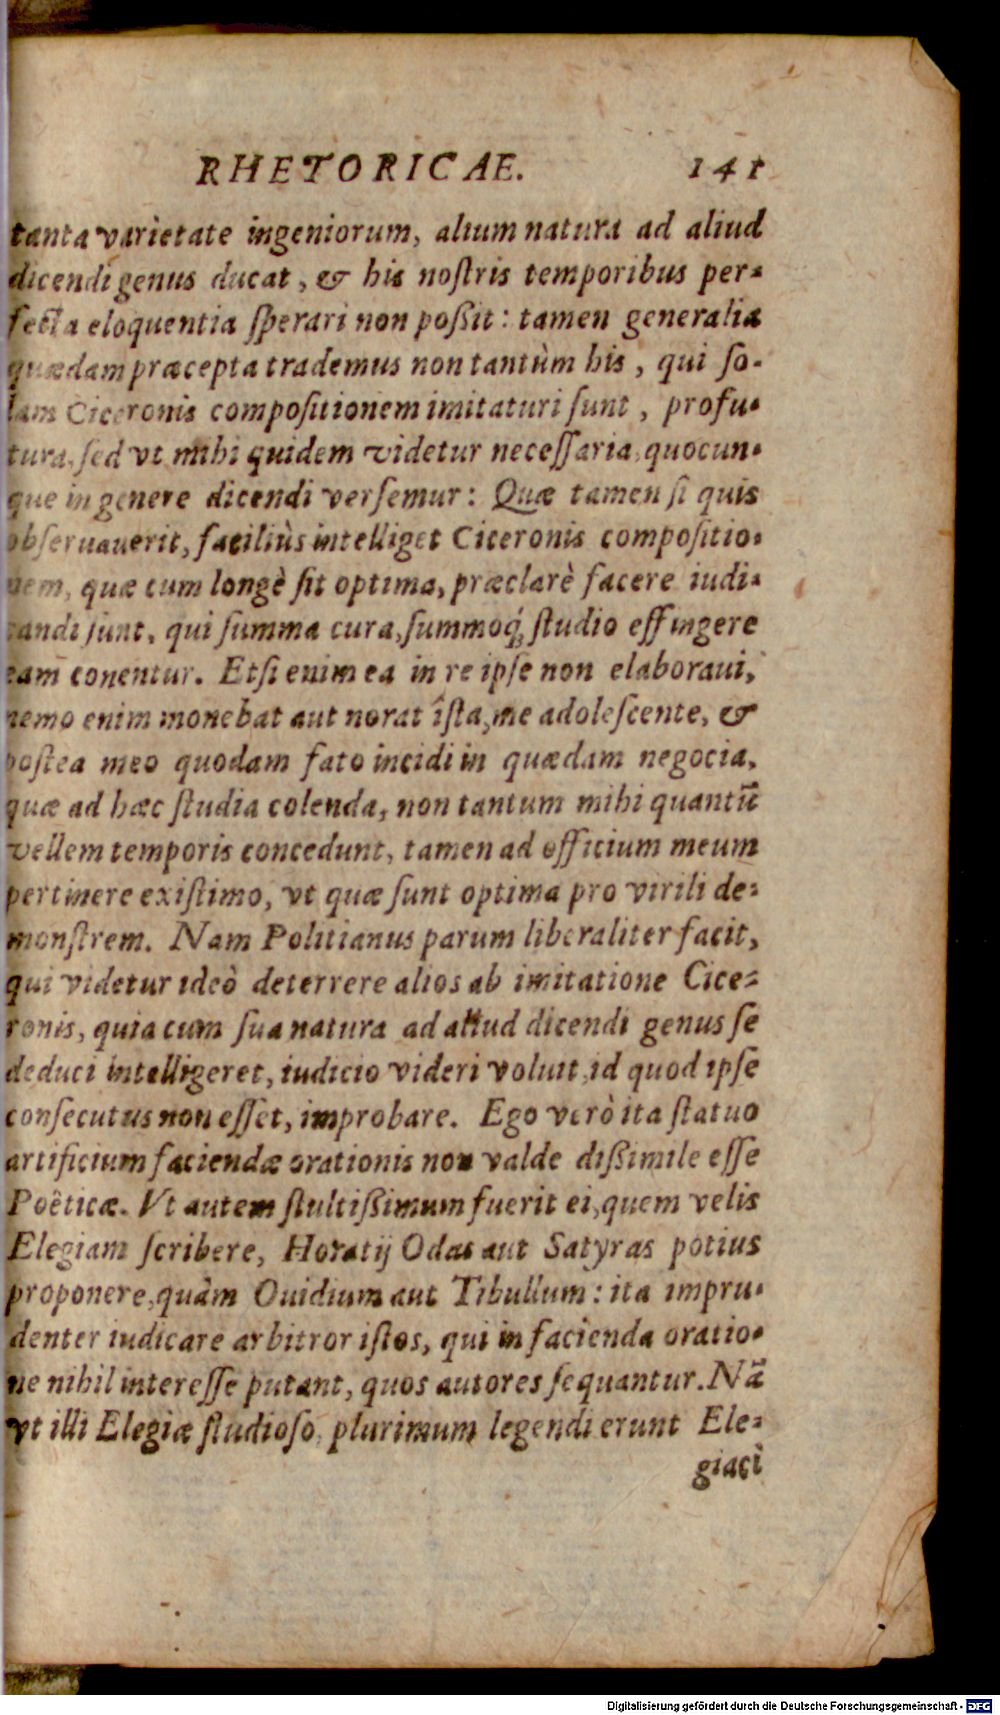 RHETORICAE. 141
tanta varietate ingeniorum, alium natura ad aliud
dicendi genus ducat, & his nostris temporibus per-
fecta eloquentia sperari non poßit: tamen generalia
quædam præcepta trademus non tantùm his, qui so-
lam Ciceronis compositionem imitaturi sunt, profu-
tura, sed vt mihi quidem videtur necessaria, quocun-
que in genere dicendi versemur: Quæ tamen si quis
obseruauerit, faciliùs intelliget Ciceronis compositio-
nem, quæ cum longè sit optima, præclarè facere iudi-
candi sunt, qui summa cura, summoq́; studio effingere
eam conentur. Etsi enim ea in re ipse non elaboraui,
nemo enim monebat aut norat ista, me adolescente, &
postea meo quodam fato incidi in quædam negocia,
quæ ad hæc studia colenda, non tantum mihi quantũ
vellem temporis concedunt, tamen ad officium meum
pertinere existimo, vt quæ sunt optima pro virili de-
monstrem. Nam Politianus parum liberaliter facit,
qui videtur ideò deterrere alios ab imitatione Cice-
ronis, quia cum sua natura ad aliud dicendi genus se
deduci intelligeret, iudicio videri voluit, id quod ipse
consecutus non esset, improbare. Ego verò ita statuo
artificium faciendæ orationis non valde dißimile esse
Poëticæ. Vt autem stultißimum fuerit ei, quem velis
Elegiam scribere, Horatij Odas aut Satyras potius
proponere, quàm Ouidium aut Tibullum: ita impru-
denter iudicare arbitror istos, qui in facienda oratio-
ne nihil interesse putant, quos autores sequantur. Nã
vt illi Elegiæ studioso, plurimum legendi erunt Ele-
giaci
Digitalisierung gefördert durch die Deutsche Forschungsgemeinschaft - DFG